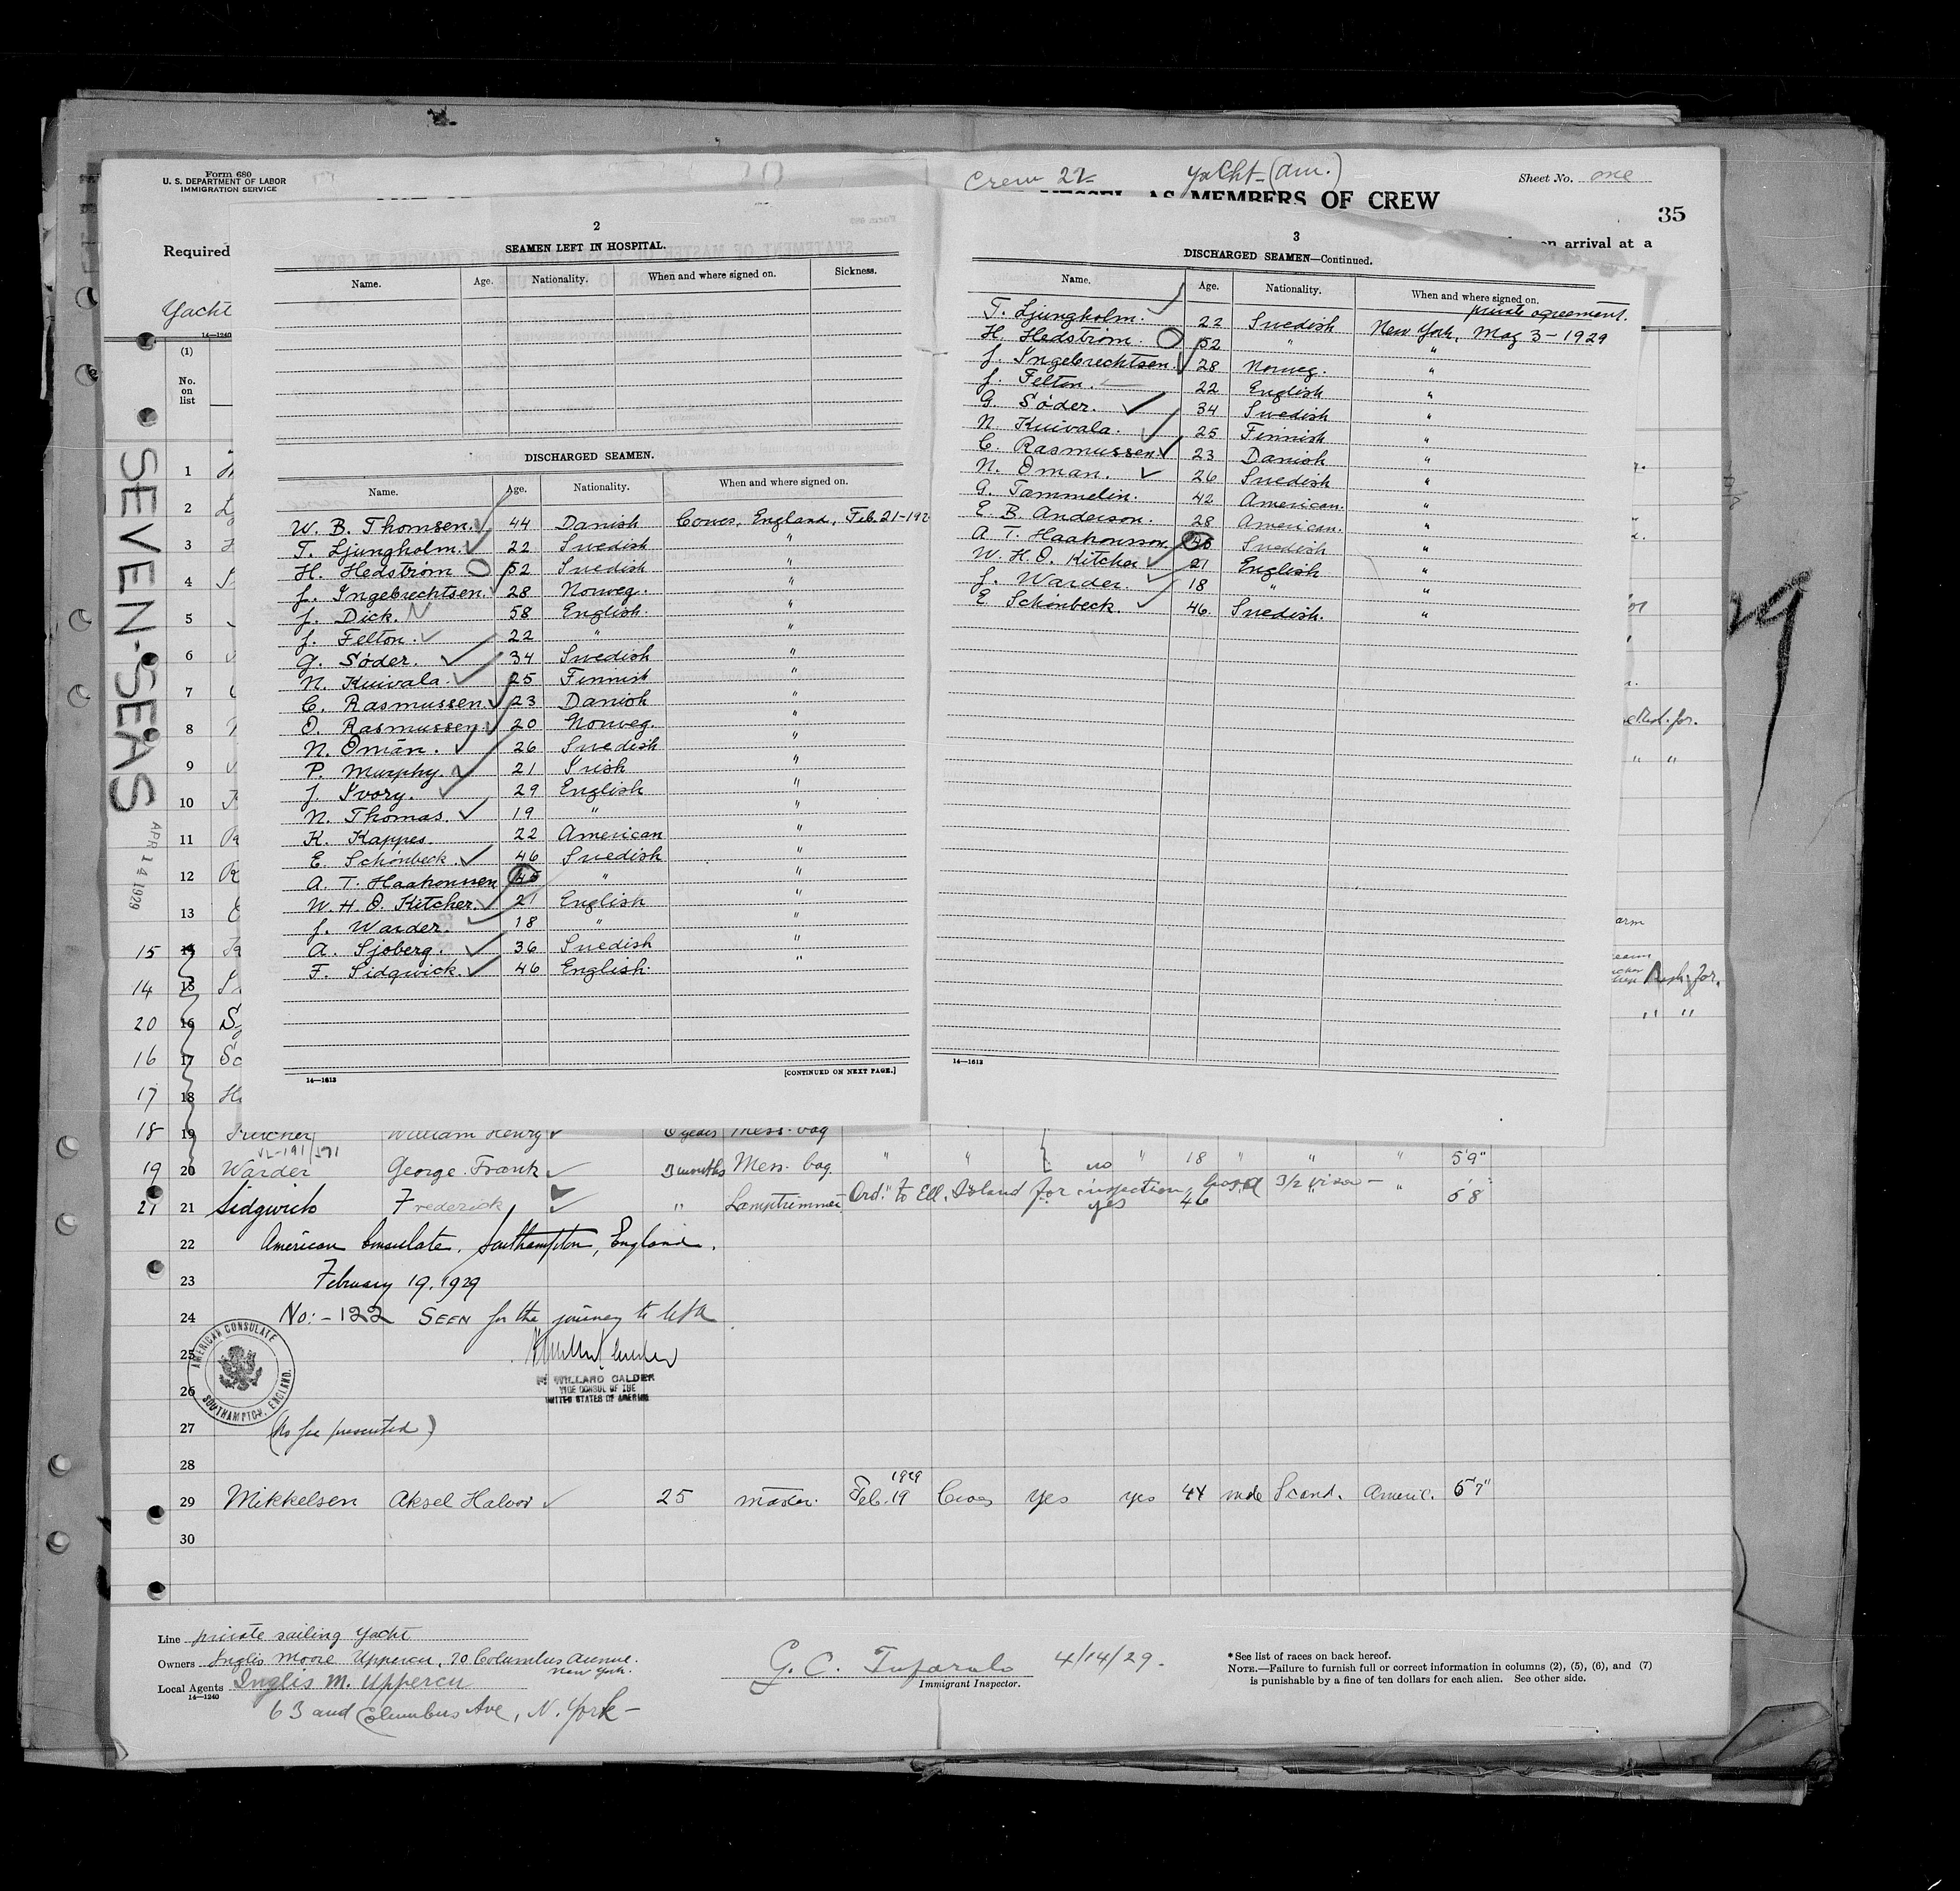 Form 680
U. S. DEPARTMENT OF LABOR
IMMIGRATION SERVICE
Required
Yacht
14—1240
(1)
No.
on
list
Crew 22
Yacht (Am.)
Sheet No. one
AS MEMBERS OF CREW
35
on arrival at a
SEVEN-SEAS
APR 14 1929
2
SEAMEN LEFT IN HOSPITAL.
Name. Age. Nationality. When and where signed on. Sickness.
DISCHARGED SEAMEN.
Name. Age. Nationality. When and where signed on.
W. B. Thomsen. 44 Danish Cowes, England, Feb. 21-192
T. Ljungholm. 22 Swedish "
H. Hedström 52 Swedish "
J. Ingebrechtsen. 28 Norweg. "
J. Dick. 58 English. "
J. Felton. 22 " "
G. Söder. 34 Swedish "
N. Kuivala. 25 Finnish "
C. Rasmussen. 23 Danish "
O. Rasmussen. 20 Norweg. "
N. Öman. 26 Swedish "
P. Murphy. 21 Irish "
J. Ivory. 29 English "
N. Thomas. 19 " "
K. Kappes. 22 American "
E. Schönbeck. 46 Swedish "
A. T. Haakonssen " "
W. H. O. Kitcher. 21 English "
J. Warder. 18 " "
A. Sjöberg. 36 Swedish "
F. Sidgwick. 46 English. "
14—1613
[CONTINUED ON NEXT PAGE.]
3
DISCHARGED SEAMEN—Continued.
Name. Age. Nationality. When and where signed on.
private agreement.
T. Ljungholm. 22 Swedish New York, May 3-1929
H. Hedström. 52 " "
J. Ingebrechtsen. 28 Norweg. "
J. Felton. 22 English "
G. Söder. 34 Swedish "
N. Kuivala. 25 Finnish "
C. Rasmussen 23 Danish "
N. Öman. 26 Swedish "
G. Tammelin. 42 American. "
E. B. Anderson. 28 American. "
A. T. Haakonsson Swedish "
W. H. O. Kitcher 21 English "
J. Warder. 18 " "
E. Schönbeck. 46 Swedish. "
14—1613
1
2
3
4
5
6
7
8
9
10
11
12
13
15 14
14 15
20 16
16 17
17 18
18 19 William Henry Mess-boy
19 20 Warder George Frank 3 months Mess. boy " " no " 18 " " " 5'9"
21 21 Sidgwick Frederick " Lamptrimmer Ord. to Ell. Island for inspection yes 46 5'8
22 American Consulate, Southampton, England.
23 February 19, 1929
24 No:-122 SEEN for the journey to USA
25
AMERICAN CONSULATE
SOUTHAMPTON, ENGLAND.
WILLARD CALDER
VICE CONSUL OF THE
UNITED STATES OF AMERICA
26
27 (No fee presented)
28
1929
29 Mikkelsen Aksel Halvor 25 master. Feb. 19 Cowes yes yes 44 male Scand. Americ. 5'7"
30
Line private sailing Yacht
Owners Inglis Moore Uppercu, 20 Columbus Avenue.
New York.
Local Agents Inglis M. Uppercu
14—1240
63 and Columbus Ave, N. York-
G. C. Tufarolo 4/14/29.
Immigrant Inspector.
*See list of races on back hereof.
NOTE.—Failure to furnish full or correct information in columns (2), (5), (6), and (7)
is punishable by a fine of ten dollars for each alien. See other side.